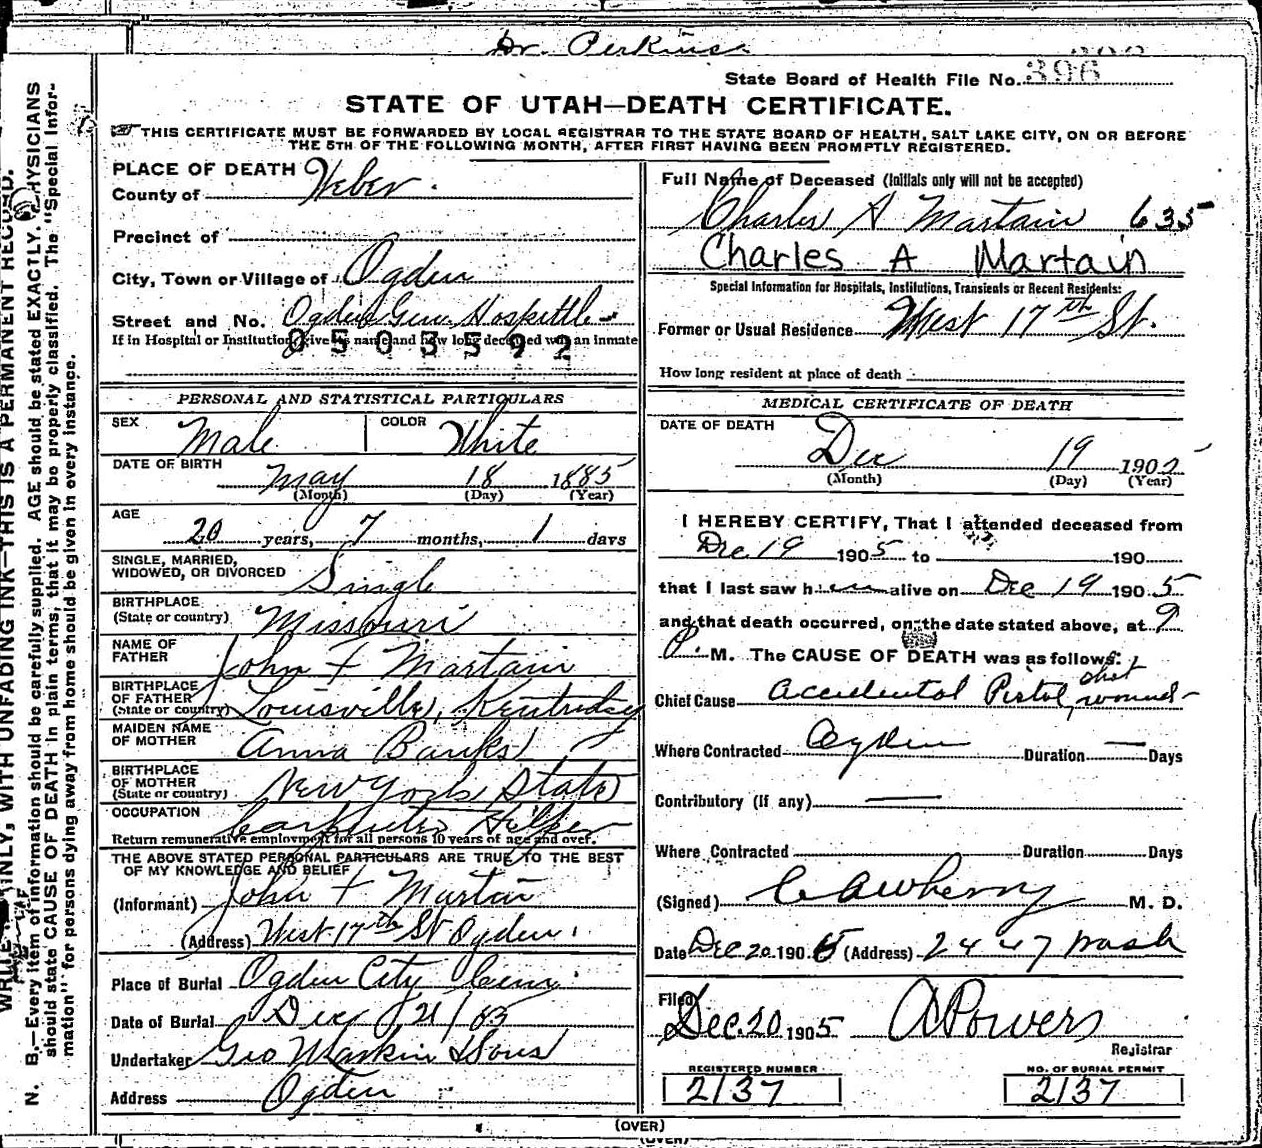 Dr. Perkins
State Board of Health File No. 396
STATE OF UTAH—DEATH CERTIFICATE.
THIS CERTIFICATE MUST BE FORWARDED BY LOCAL REGISTRAR TO THE STATE BOARD OF HEALTH, SALT LAKE CITY, ON OR BEFORE
THE 5TH OF THE FOLLOWING MONTH, AFTER FIRST HAVING BEEN PROMPTLY REGISTERED.
PLACE OF DEATH
County of Weber.
Precinct of
City, Town or Village of Ogden
Street and No. Ogden Gen Hospittle
If in Hospital or Institution, give its name and how long deceased was an inmate
0503592
PERSONAL AND STATISTICAL PARTICULARS
SEX Male COLOR White
DATE OF BIRTH May 18 1885
(Month) (Day) (Year)
AGE 20 years, 7 months, 1 days
SINGLE, MARRIED,
WIDOWED, OR DIVORCED Single
BIRTHPLACE
(State or country) Missouri
NAME OF
FATHER John F Martain
BIRTHPLACE
OF FATHER
(State or country) Louisville, Kentucky
MAIDEN NAME
OF MOTHER Anna Banks
BIRTHPLACE
OF MOTHER
(State or country) New York State
OCCUPATION Carpenters Helper
Return remunerative employment for all persons 10 years of age and over.
THE ABOVE STATED PERSONAL PARTICULARS ARE TRUE TO THE BEST
OF MY KNOWLEDGE AND BELIEF
(Informant) John F Martain
(Address) West 17th St Ogden.
Place of Burial Ogden City Cem.
Date of Burial Dec 21/05
Undertaker Geo Larkin & Sons
Address Ogden
Full Name of Deceased (Initials only will not be accepted)
Charles A Martain 635
Charles A Martain
Special Information for Hospitals, Institutions, Transients or Recent Residents:
Former or Usual Residence West 17th St.
How long resident at place of death
MEDICAL CERTIFICATE OF DEATH
DATE OF DEATH
Dec 19 1905
(Month) (Day) (Year)
I HEREBY CERTIFY, That I attended deceased from
Dec 19 1905 to 190
that I last saw him alive on Dec 19 1905
and that death occurred, on the date stated above, at 9
P. M. The CAUSE OF DEATH was as follows:
Chief Cause accidental Pistol shot wound
Where Contracted Ogden Duration — Days
Contributory (If any) —
Where Contracted Duration Days
(Signed) M. D.
Date Dec 20 1905 (Address) 2447 Wash
Filed
Dec. 20 1905 A Powers
Registrar
REGISTERED NUMBER NO. OF BURIAL PERMIT
2137 2137
(OVER)
(OVER)
WRITE PLAINLY, WITH UNFADING INK—THIS IS A PERMANENT RECORD.
N. B.—Every item of information should be carefully supplied. AGE should be stated EXACTLY. PHYSICIANS
should state CAUSE OF DEATH in plain terms, that it may be properly classified. The "Special Infor-
mation" for persons dying away from home should be given in every instance.